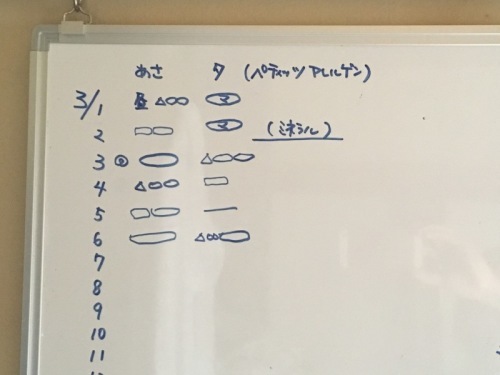 あさ 夕 (ペティッツ アレルゲン)
3/1 △○○ マ
2 マ (ミネラル)
3 ◎ ○ △○○
4 △○○ □
5 □○ —
6 △○○○
7
8
9
10
11